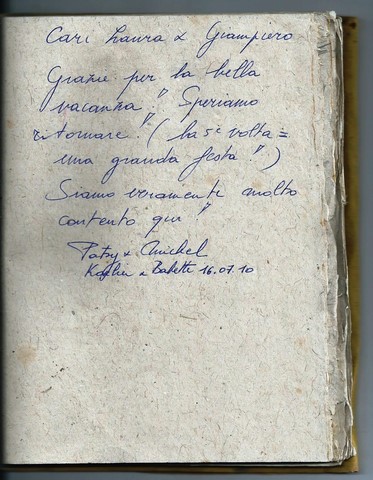 Cari Laura & Giampiero
Grazie per la bella
vacanza!! Speriamo
ritornare!! (la 5e volta =
una granda festa!!)
Siamo veramente molto
contento qui!!
Patsy & Michel
& Babette 16.07.10